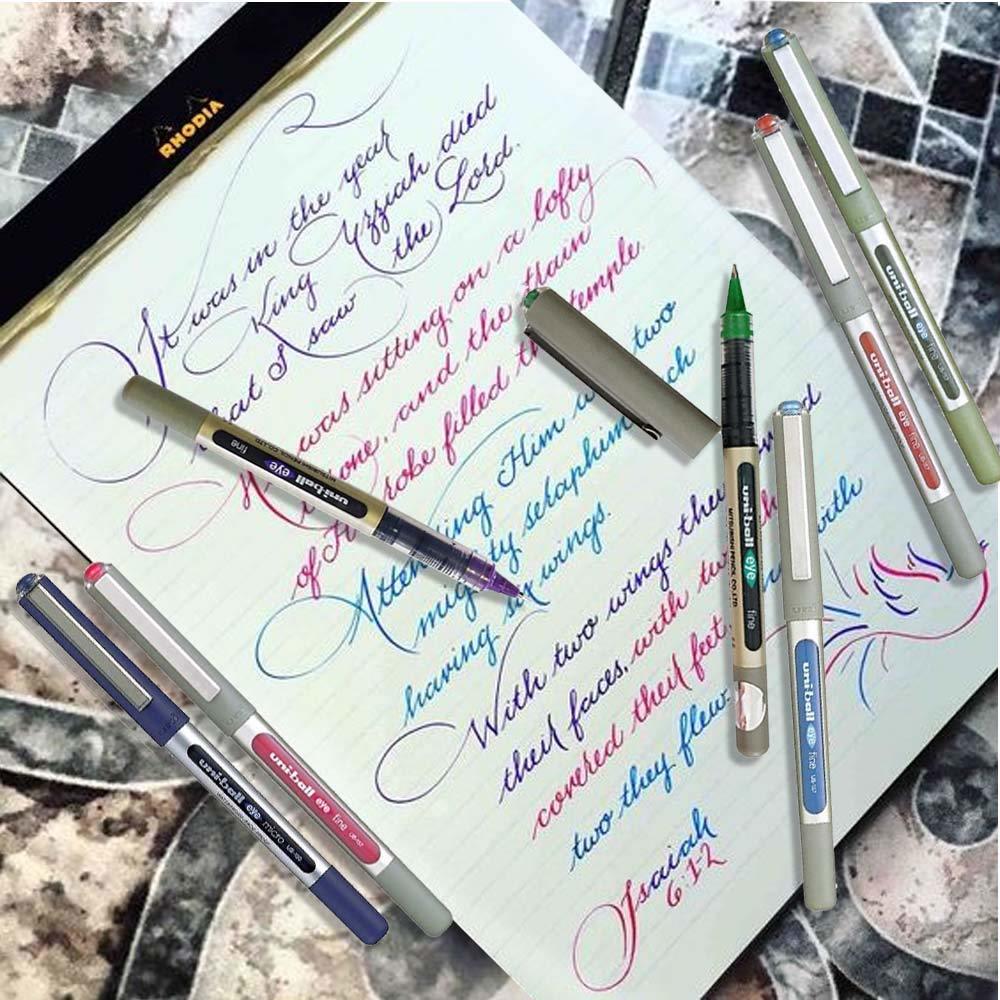 RHODIA
It was in the year
King Uzziah died
that I saw the Lord.
was sitting on a lofty
and the train
of robe filled the temple.
Attending Him two
mighty seraphim
having six wings.
With two wings they
their faces, with
covered their feet, with
two they flew.
Isaiah
6:1-2
uni-ball eye fine
MITSUBISHI PENCIL CO.,LTD
uni-ball eye fine
MITSUBISHI PENCIL CO.,LTD
uni-ball eye fine
uni-ball eye fine
uni-ball eye fine UB-157
uni-ball eye micro
uni-ball eye fine UB-157